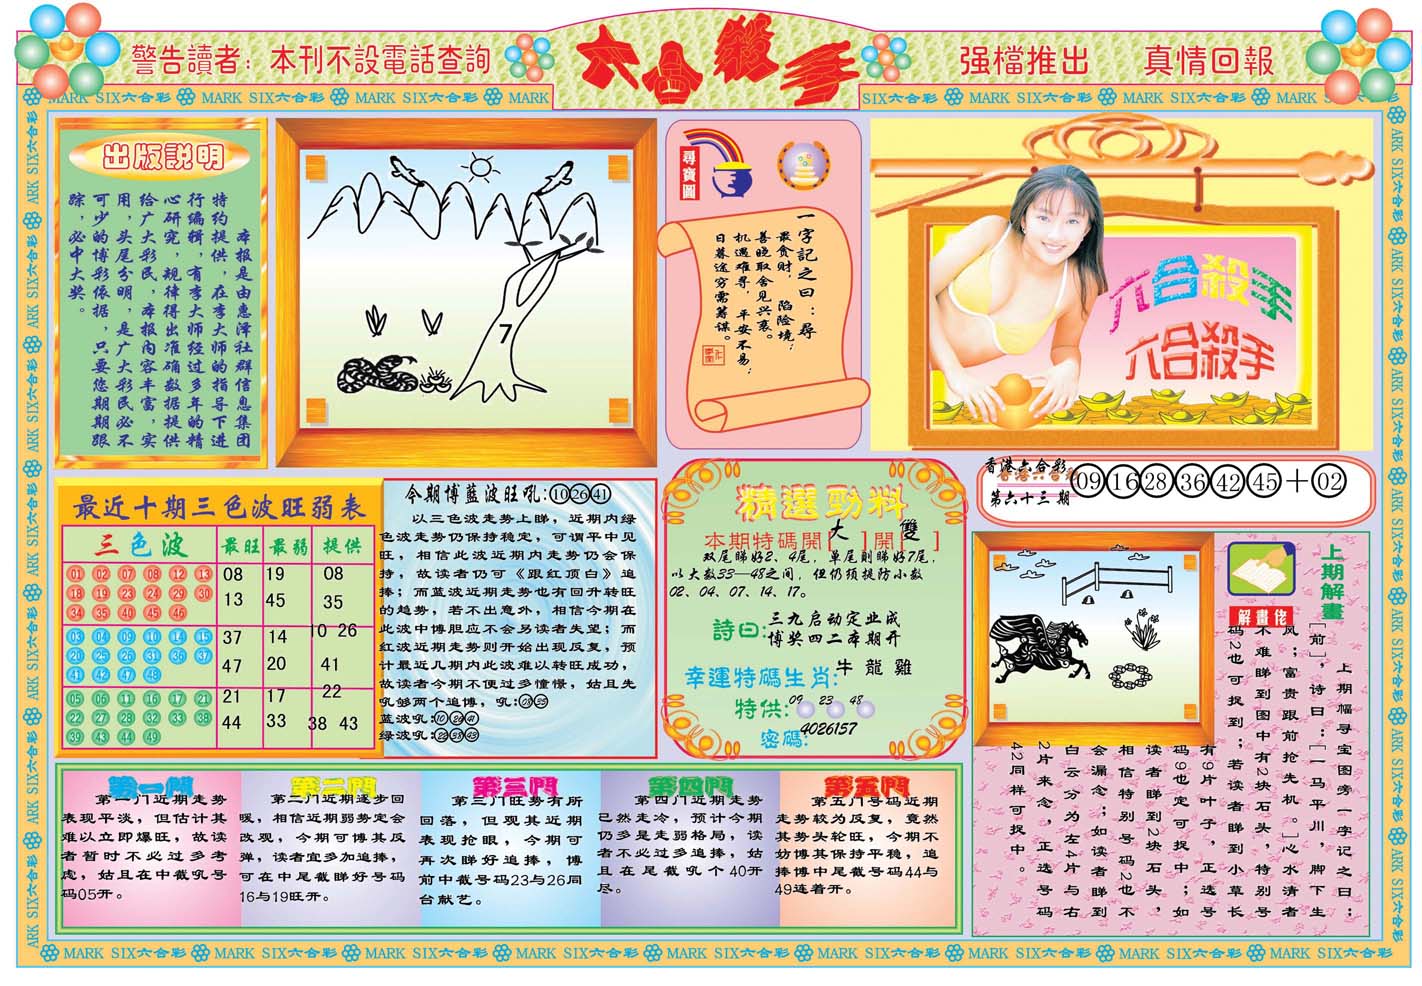 警告讀者：本刊不設電話查詢
六合殺手
强檔推出 真情回報
MARK SIX六合彩 MARK SIX六合彩 MARK SIX六合彩 MARK
SIX六合彩 MARK SIX六合彩 MARK SIX六合彩 MARK SIX六合彩
出版説明
本报是由惠泽社群信息集团
特约提供，在李大师的指导下进
行编辑，有李大师经过多年的精
心研究，规律得出准确数据提供
给广大彩民，本报内容丰富，实
用，头尾分明，是广大彩民必不
可少的博彩依据，只要您期期跟
踪，必中大奖。
7
尋寶圖
一字記之曰：尋
最贪财， 陷险境；
善晓取舍见兴衰。
机遇难寻，平安不易；
日暮途穷需筹谋。
六合殺手
六合殺手
香港六合彩
第六十三期
09 16 28 36 42 45 + 02
最近十期三色波旺弱表
三色波 最旺 最弱 提供
01 02 07 08 12 13
18 19 23 24 29 30
34 35 40 45 46
08 19 08
13 45 35
03 04 09 10 14 15
20 25 26 31 36 37
41 42 47 48
37 14 10 26
47 20 41
05 06 11 16 17 21
22 27 28 32 33 38
39 43 44 49
21 17 22
44 33 38 43
今期博蓝波旺吼:10 26 41
以三色波走势上睇，近期内绿
色波走势仍保持稳定，可谓平中见
旺，相信此波近期内走势仍会保
持，故读者仍可《跟红顶白》追
捧；而蓝波近期走势也有回升转旺
的趋势，若不出意外，相信今期在
此波中博胆应不会另读者失望；而
红波近期走势则开始出现反复，预
计最近几期内此波难以转旺成功，
故读者今期不便过多憧憬，姑且先
吼够两个追博，吼:08 35
蓝波吼:10 26 41
绿波吼:22 38 43
精選勁料
本期特碼開[大]開[雙]
双尾睇好2、4尾，单尾则睇好7尾，
以大数33—48之间，但仍须提防小数
02、04、07、14、17。
詩曰:三九启动定业成
博奖四二本期开
幸運特碼生肖:牛 龍 雞
特供: 09 23 48
密碼: 4026157
上期解畫
解畫佬
上期幅寻宝图旁一字记之曰：
[前]，诗曰：[一马平川，脚下生
风；富贵跟前抢先机。]心水清者
不难睇到图中有2块石头，特别号
码2也可捉到；若读者睇到小草长
有9片叶子，正选号
码9也定可捉中；如
读者睇到2块石头，
相信特别号码2也不
会漏念；如读者睇到
白云分为左4片与右
2片来念，正选号码
42同样可捉中。
第一門
第一门近期走势
表现平淡，但估计其
难以立即爆旺，故读
者暂时不必过多考
虑，姑且在中截吼号
码05开。
第二門
第二门近期逐步回
暖，相信近期弱势定会
改观，今期可博其反
弹，读者宜多加追捧，
可在中尾截睇好号码
16与19旺开。
第三門
第三门旺势有所
回落，但观其近期
表现抢眼，今期可
再次睇好追捧，博
前中截号码23与26同
台献艺。
第四門
第四门近期走势
已然走冷，预计今期
仍多是走弱格局，读
者不必过多追捧，姑
且在尾截吼个40开
尽。
第五門
第五门号码近期
走势较为反复，竟然
其势头轮旺，今期不
妨博其保持平稳，追
捧博中尾截号码44与
49连着开。
MARK SIX六合彩 MARK SIX六合彩 MARK SIX六合彩 MARK SIX六合彩 MARK SIX六合彩 MARK SIX六合彩 MARK SIX六合彩 MARK SIX六合彩